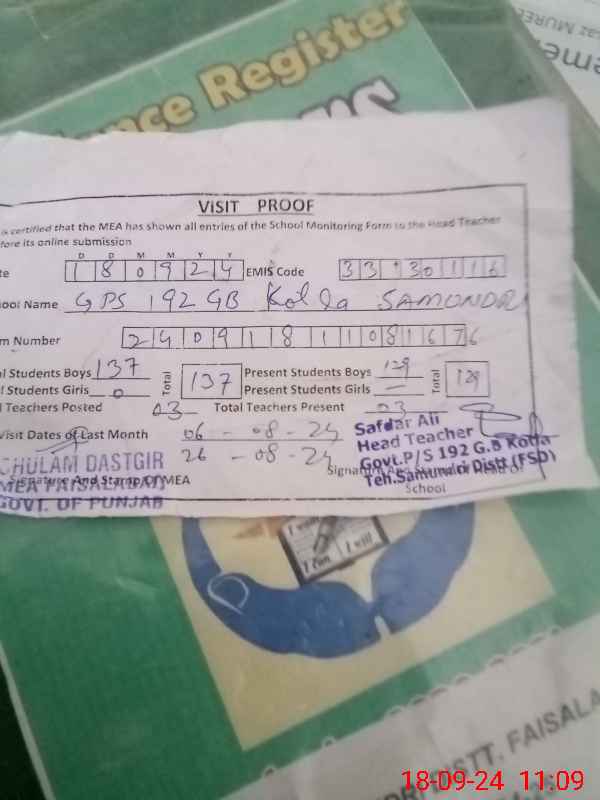 lance Register
VISIT PROOF
is certified that the MEA has shown all entries of the School Monitoring Form to the Head Teacher
fore its online submission
D D M M Y Y
te 180924 EMIS Code 33130116
ool Name GPS 192 GB Kolla SAMONDRI
m Number 24091811081676
l Students Boys 137 Total 137 Present Students Boys 129 Total 129
l Students Girls 0 Present Students Girls —
l Teachers Posted 03 Total Teachers Present 03
Visit Dates of Last Month 06 - 08 - 24
26 - 08 - 24
GHULAM DASTGIR
MEA FAISALABAD
GOVT. OF PUNJAB
Signature And Stamp Of MEA
Safdar Ali
Head Teacher
Govt.P/S 192 G.B Kotla
Teh.Samundri Distt (FSD)
Signature And Stamp of Head Of
School
I can
I will
DRI DISTT. FAISALA
18-09-24 11:09